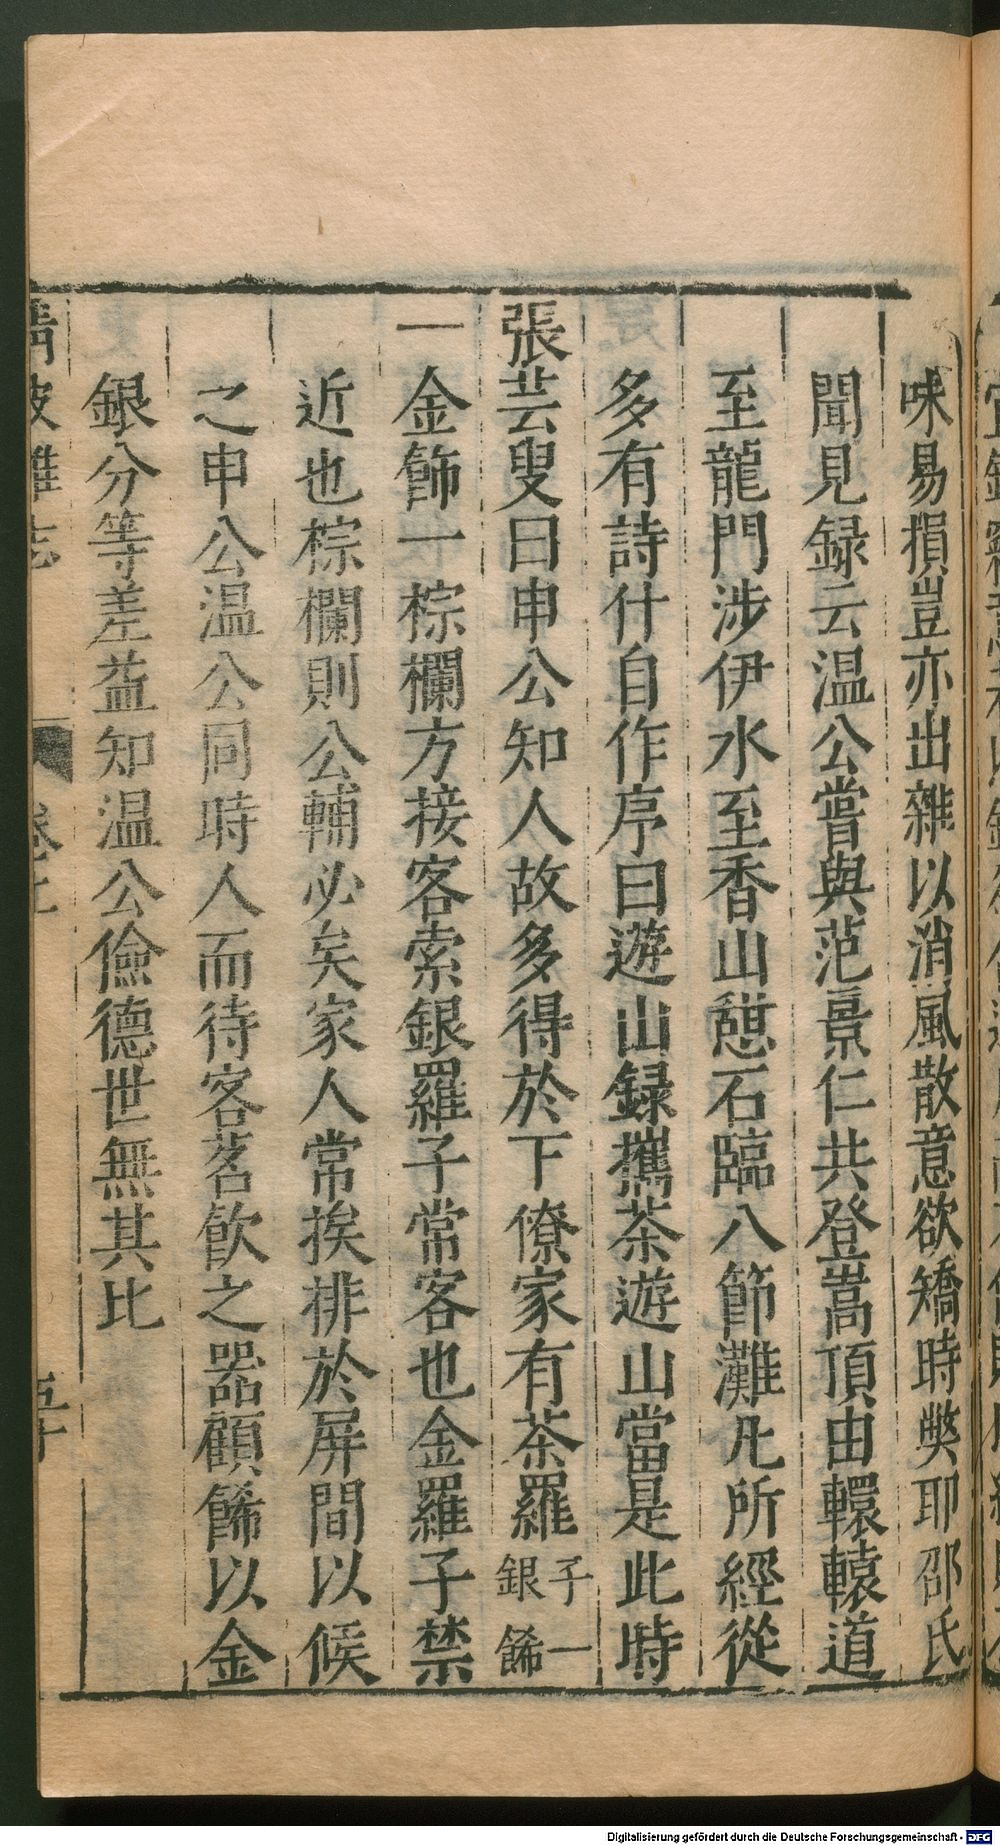 味易損豈亦出雜以消風散意欲矯時弊耶邵氏
聞見録云温公嘗與范景仁共登嵩頂由轘轅道
至龍門涉伊水至香山憩石臨八節灘凡所經從
多有詩什自作序曰遊山録攜茶遊山當是此時
張芸叟曰申公知人故多得於下僚家有茶羅子一
銀餙
一金餙一棕欄方接客索銀羅子常客也金羅子禁
近也棕欄則公輔必矣家人常挨排於屏間以候
之申公温公同時人而待客茗飲之器顧餙以金
銀分等差益知温公儉德世無其比
Digitalisierung gefördert durch die Deutsche Forschungsgemeinschaft - DFG